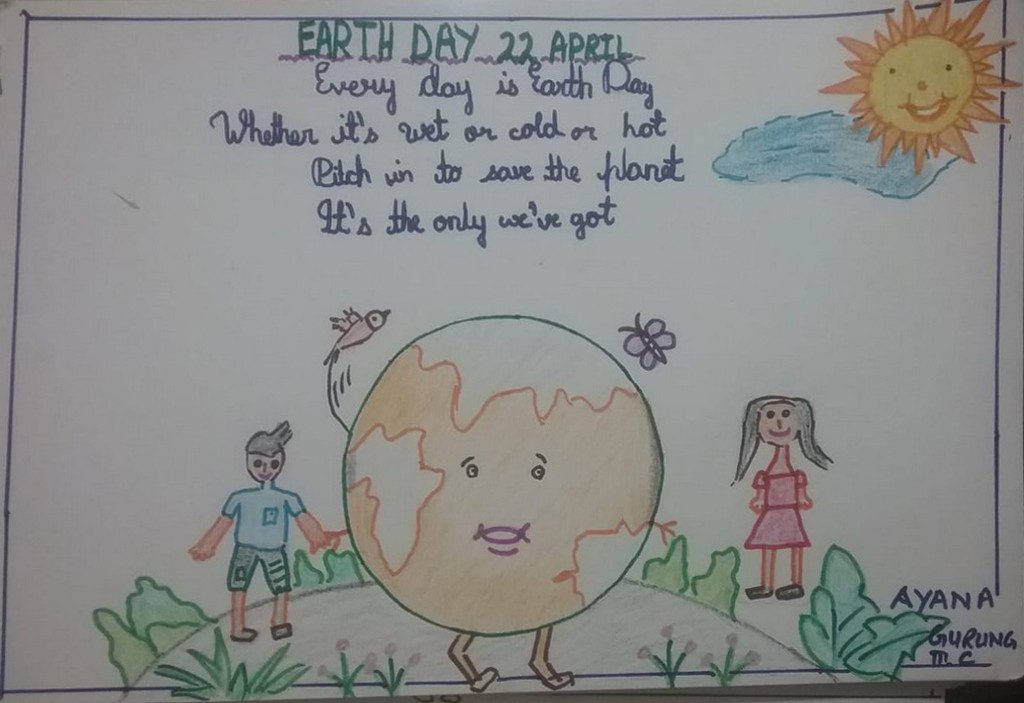 EARTH DAY 22 APRIL
Every day is Earth Day
Whether it's wet or cold or hot
Pitch in to save the planet
It's the only we've got
AYANA
GURUNG
III C